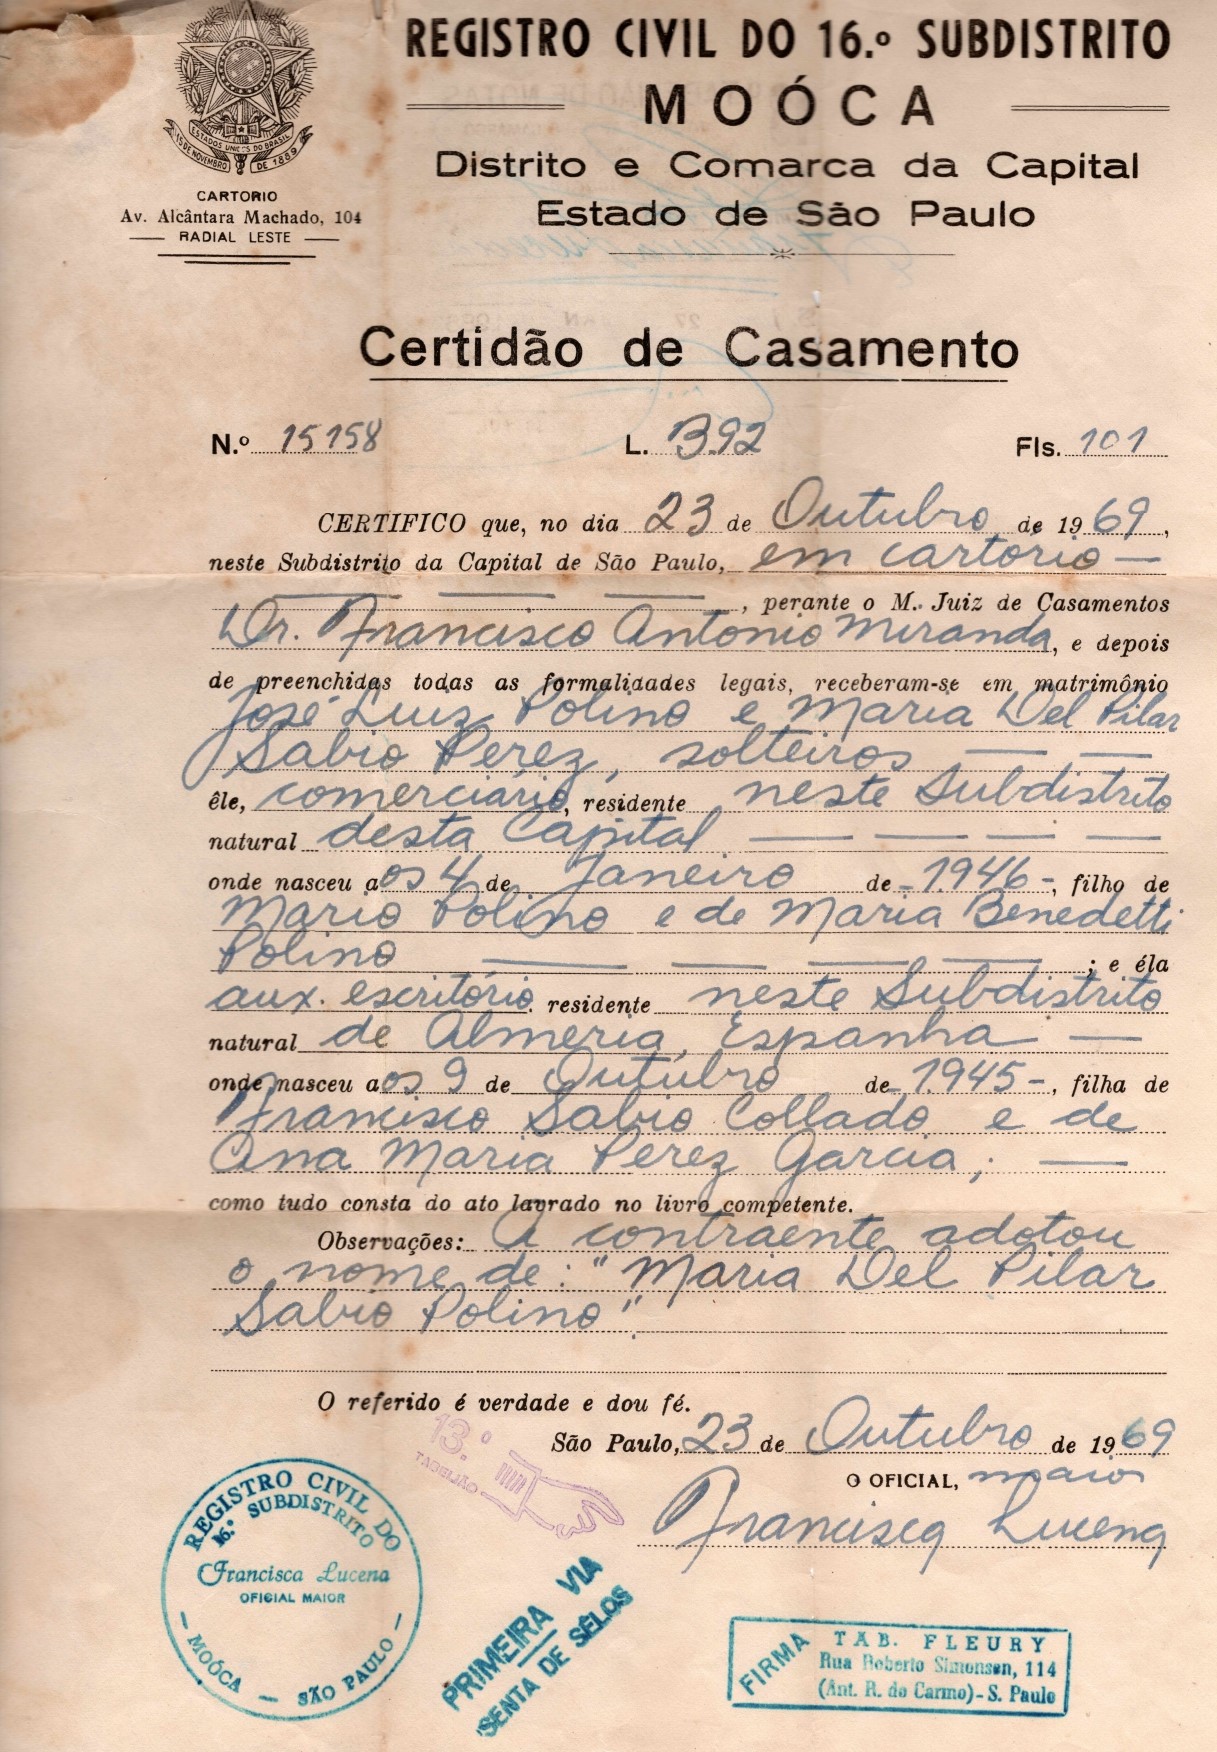 REGISTRO CIVIL DO 16.º SUBDISTRITO
MOÓCA
Distrito e Comarca da Capital
Estado de São Paulo
ESTADOS UNIDOS DO BRASIL
15 DE NOVEMBRO DE 1889
CARTORIO
Av. Alcântara Machado, 104
RADIAL LESTE
Certidão de Casamento
N.º 15158 L. B92 Fls. 101
CERTIFICO que, no dia 23 de Outubro de 1969,
neste Subdistrito da Capital de São Paulo, em cartório —
, perante o M. Juiz de Casamentos
Dr. Francisco Antonio Miranda, e depois
de preenchidas todas as formalidades legais, receberam-se em matrimônio
José Luiz Polino e Maria Del Pilar
Sabio Perez, solteiros — —
êle, comerciário, residente neste Subdistrito
natural desta Capital — — — —
onde nasceu aos 4 de Janeiro de - 1946 -, filho de
Mario Polino e de Maria Benedetti
Polino — — — — ; e éla
aux. escritório. residente neste Subdistrito
natural de Almeria, Espanha —
onde nasceu aos 9 de Outubro de - 1945 -, filha de
Francisco Sabio Collado e de
Ana Maria Perez Garcia,; —
como tudo consta do ato lavrado no livro competente.
Observações: A contraente adotou
o nome de: "Maria Del Pilar
Sabio Polino".
O referido é verdade e dou fé.
São Paulo, 23 de Outubro de 1969
O OFICIAL, maior
Francisca Lucena
13.º
TABELIÃO
REGISTRO CIVIL DO
16.º SUBDISTRITO
Francisca Lucena
OFICIAL MAIOR
— MOÓCA — SÃO PAULO —
PRIMEIRA VIA
SENTA DE SÊLOS
FIRMA
TAB. FLEURY
Rua Roberto Simonsen, 114
(Ant. R. do Carmo) - S. Paulo